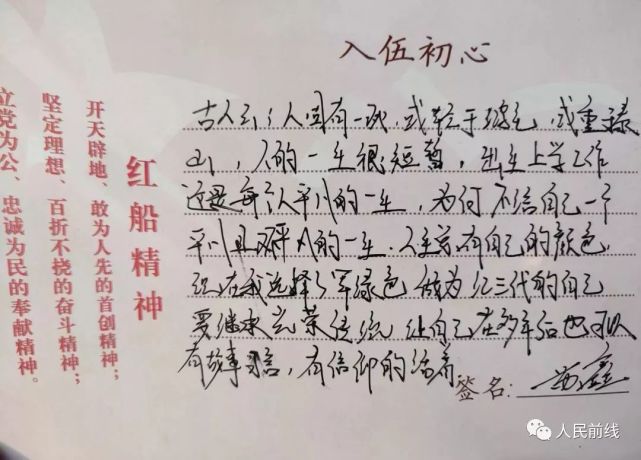 入伍初心
古人云：人固有一死，或轻于鸿毛，或重
山，人的一生很短暂，出生上学工作
这是每个人平凡的一生，为何不给自己一个
平凡且不平凡的一生．人生总有自己的颜色
现在我选择了军绿色 做为红三代的自己
要继承光荣传统 让自己在多年后也可以
有故事，有信仰的活着
签名：
红船精神
开天辟地、敢为人先的首创精神；
坚定理想、百折不挠的奋斗精神；
立党为公、忠诚为民的奉献精神。
人民前线